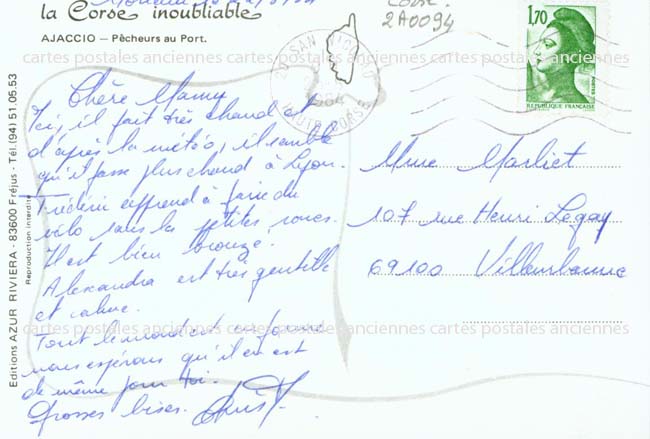 la Corse inoubliable
AJACCIO — Pêcheurs au Port.
Corse
2A0094
1,70
POSTES
REPUBLIQUE FRANCAISE
SAN
HAUTE CORSE
Editions AZUR RIVIERA - 83600 Fréjus - Tél (94) 51.05.53
Reproduction interdite
cartes postales anciennes cartes postales anciennes cartes postales anciennes
Chère Mamy
Ici, il fait très chaud et
d'après la météo, il semble
qu'il fasse plus chaud à Lyon.
Frédéric apprend à faire du
vélo sans les petites roues.
Il est bien bronzé.
Alexandra est très gentille
et calme.
Tout le monde est en forme
nous espérons qu'il en est
de même pour toi.
Grosses bises.
Mme Marliet
107 rue Henri Legay
69100 Villeurbanne
cartes postales anciennes cartes postales anciennes cartes postales anciennes